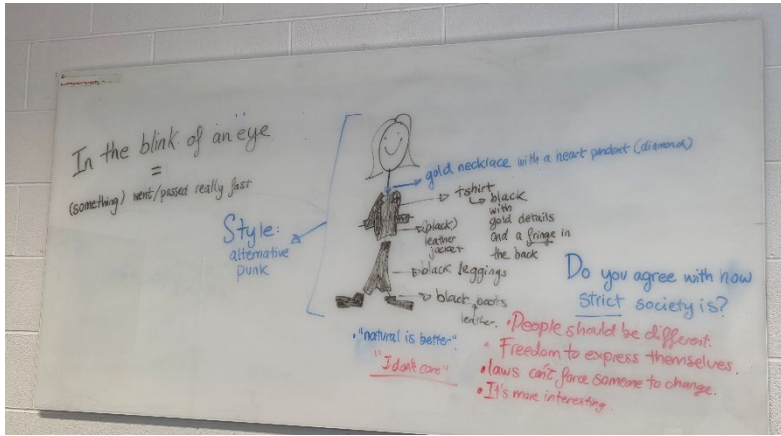 In the blink of an eye
=
(something) went/passed really fast
Style:
alternative
punk
gold necklace with a heart pendant (diamond)
tshirt
black
with
gold details
and a fringe in
the back
(black)
leather
jacket
black leggings
black boots
leather.
• "natural is better"
"I don't care"
Do you agree with how
strict society is?
• People should be different.
• Freedom to express themselves.
• laws can't force someone to change.
• It's more interesting.